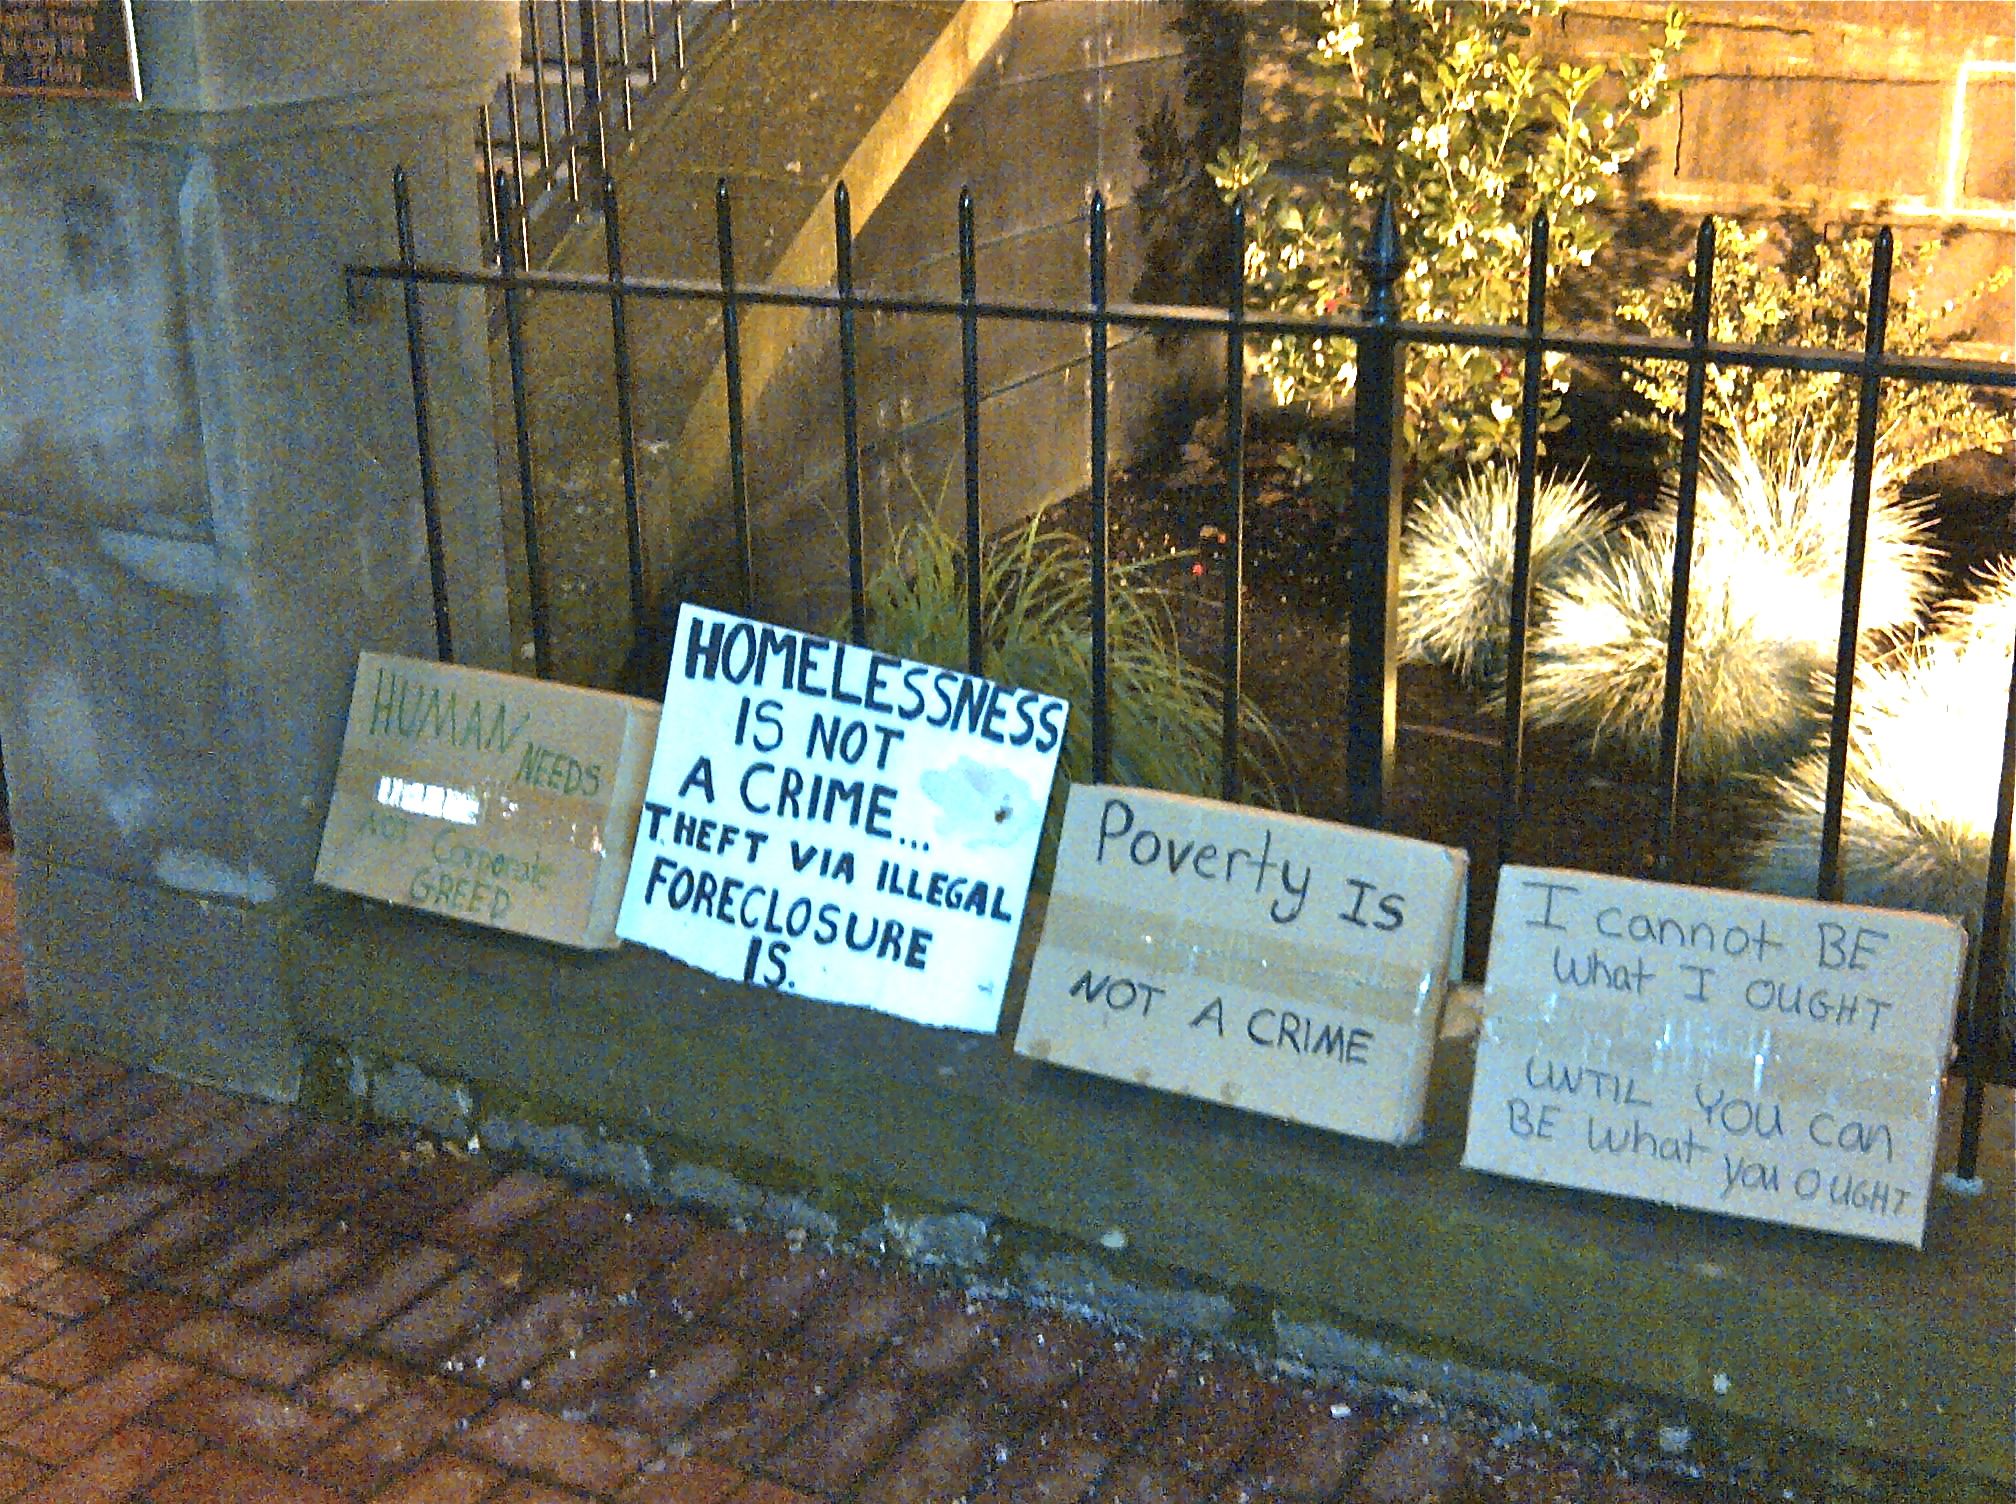 HUMAN NEEDS
NOT Corporate
GREED
HOMELESSNESS
IS NOT
A CRIME...
THEFT VIA ILLEGAL
FORECLOSURE
IS.
Poverty IS
NOT A CRIME
I cannot BE
what I OUGHT
UNTIL YOU can
BE what you OUGHT